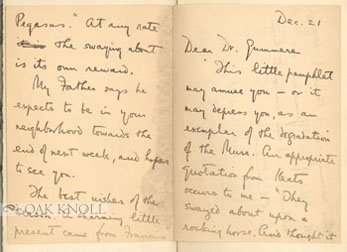 Dec. 21
Dear Dr. Gummere
This little pamphlet
may amuse you – or it
may depress you, as an
exemplar of the degradation
of the Muse. An appropriate
quotation from Keats
occurs to me – "They
swayed about upon a
rocking horse, And thought it
Pegasus." At any rate
the swaying about
is its own reward.
My Father says he
expects to be in your
neighborhood towards the
end of next week, and hopes
to see you.
The best wishes of the
charming little
present came from Francis
© OAK KNOLL